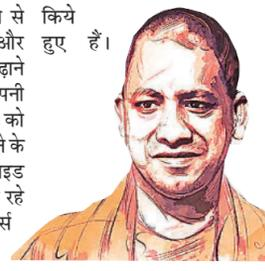 से किये
और हुए हैं।
ढ़ाने
पनी
को
ने के
इड
रहे
र्स